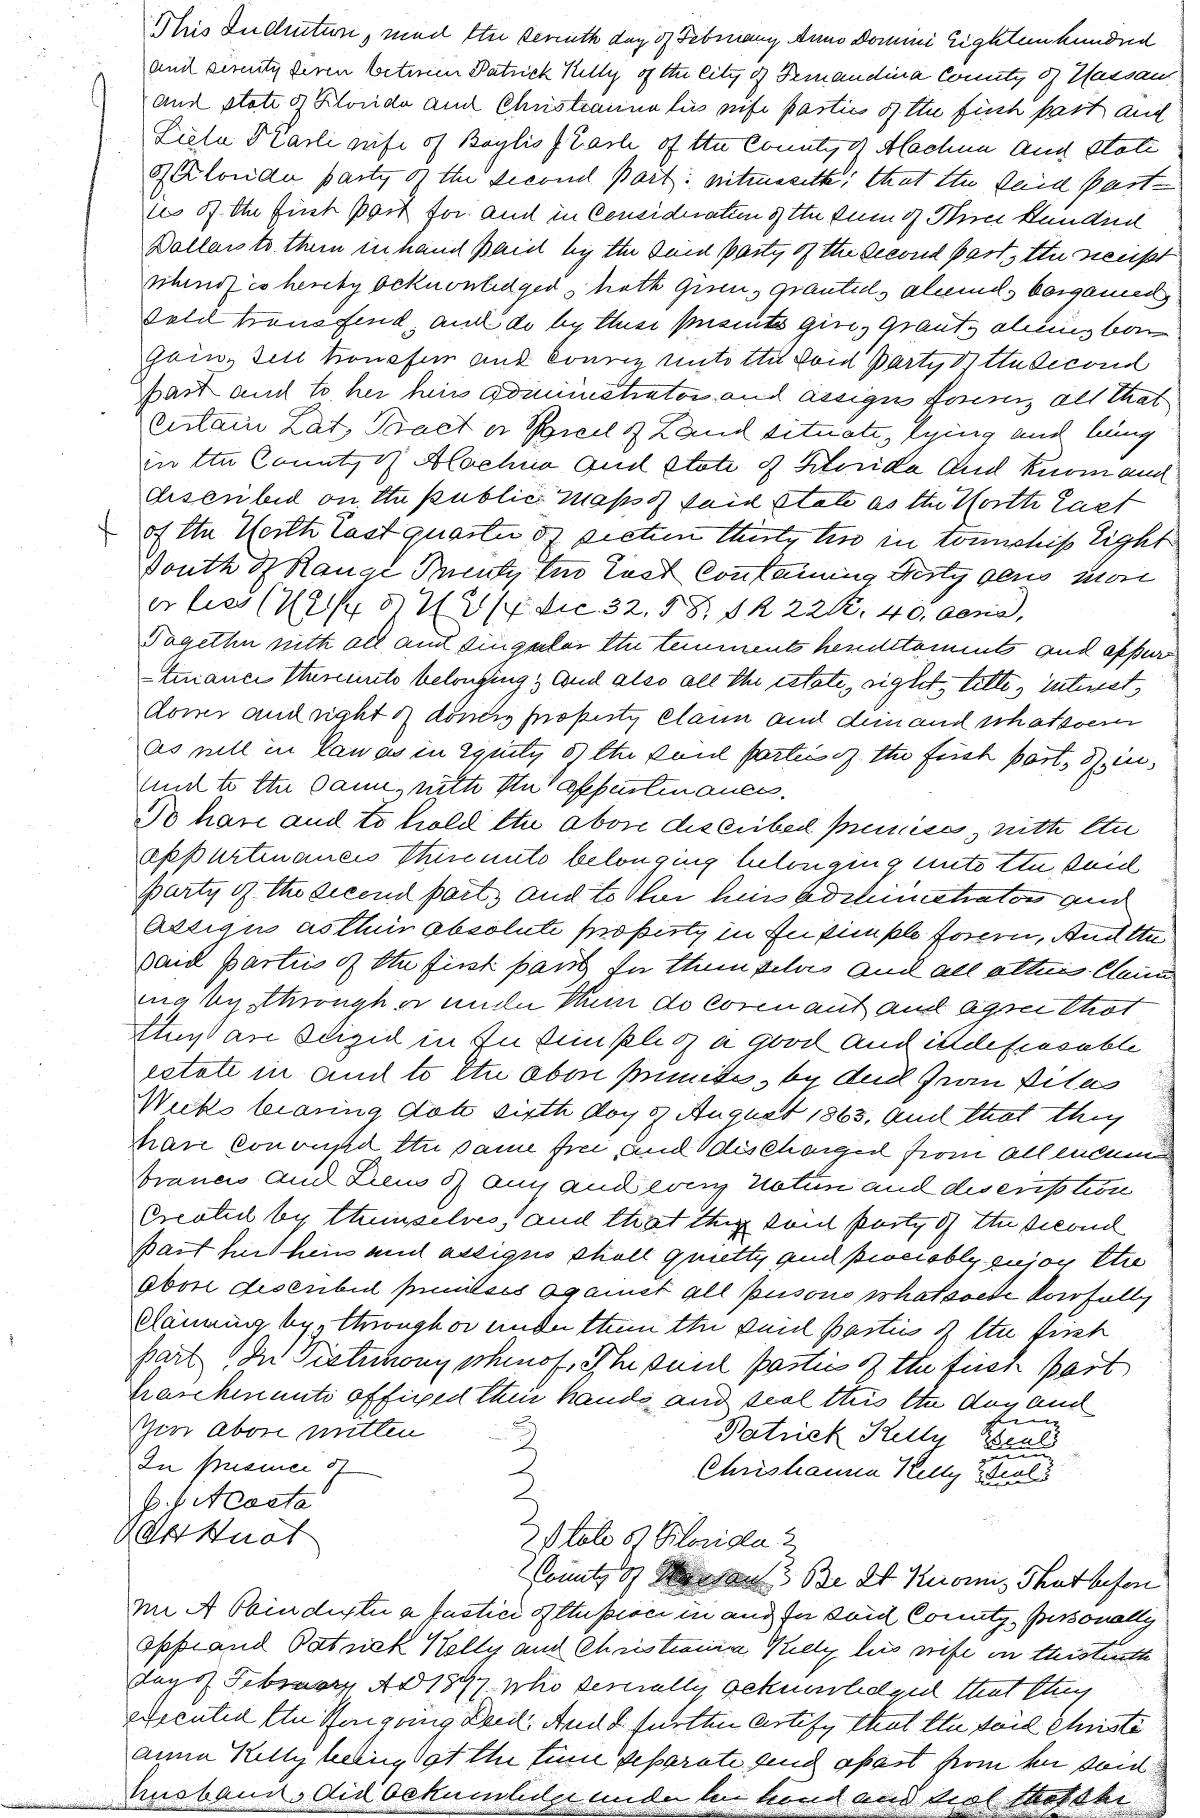 This Indenture, mad the seventh day of February Anno Domini Eighteen hundred
and seventy seven between Patrick Kelly of the City of Fernandina County of Nassau
and state of Florida and Christeanna his wife parties of the first part and
Liela F Earle wife of Baylis J Earle of the County of Alachua and state
of Florida party of the second part: witnesseth; that the said part=
ies of the first part for and in consideration of the sum of Three Hundred
Dollars to them in hand paid by the said party of the second part, the receipt
whereof is hereby acknowledged, hath given, granted, aliened, bargained,
sold transferd, and do by these presents give, grant, aliene, bar
gain, sell transfer and convey unto the said party of the second
part and to her heirs administrators and assigns forever, all that
certain Lot, Tract or Parcel of Land situate, lying and being
in the County of Alachua and state of Florida and known and
described on the public maps of said state as the North East
of the North East quarter of section thirty two in township Eight
South of Range Twenty two East containing Forty acres more
or less (NE1/4 of NE1/4 Sec 32. T 8. S R 22 E. 40. acres).
Together with all and singular the tenements hereditaments and appur
-tenances thereunto belonging; and also all the estate, right, title, interest,
dower and right of dower, property claim and demand whatsoever
as well in law as in equity of the said parties of the first part, of, in,
and to the same, with the appurtenances.
To have and to hold the above described premises, with the
appurtenances thereunto belonging belonging unto the said
party of the second part, and to her heirs administrators and
assigns as their absolute property in fee simple forever. And the
said parties of the first part for themselves and all others claim
ing by, through or under them do covenant and agree that
they are seized in fee simple of a good and indefeasable
estate in and to the above premises, by deed from Silas
Weeks bearing date sixth day of August 1863. and that they
have conveyed the same free and discharged from all encum
brances and Liens of any and every nature and description
created by themselves, and that they said party of the second
part her heirs and assigns shall quietly and peaceably enjoy the
above described premises against all persons whatsoever lawfully
claiming by, through or under them the said parties of the first
part. In Testimony whereof, The said parties of the first part
have hereunto affixed their hands and seal this the day and
year above written
Patrick Kelly Seal
In presence of
Christianna Kelly Seal
J. J. Acosta
State of Florida
County of Nassau Be It Known, That before
me A Poindexter a Justice of the peace in and for said County, personally
appeared Patrick Kelly and Christianna Kelly his wife on this tenth
day of February AD 1877 who severally acknowledged that they
executed the foregoing Deed. And I further certify that the said Christi
anna Kelly being at the time separate and apart from her said
husband, did acknowledge under her hand and seal that she